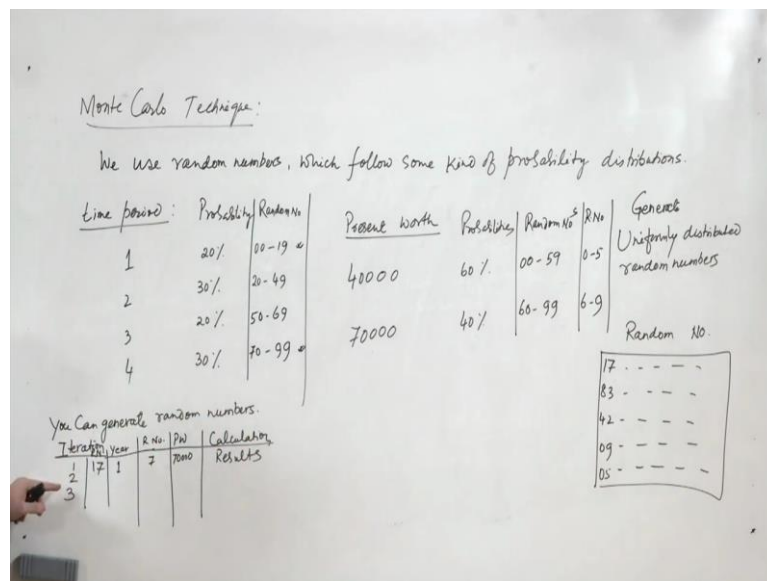 Monte Carlo Technique:
We use random numbers, which follow some kind of probability distributions.
time period: Probability Random No
1 20% 00-19
2 30% 20-49
3 20% 50-69
4 30% 70-99
Present Worth Probabilities Random Nos R.No
40000 60% 00-59 0-5
70000 40% 60-99 6-9
Generate
Uniformly distributed
random numbers
Random No.
17
83
42
09
05
You Can generate random numbers.
Iteration Year R No. PW Calculation
1 17 1 7 70000 Results
2
3